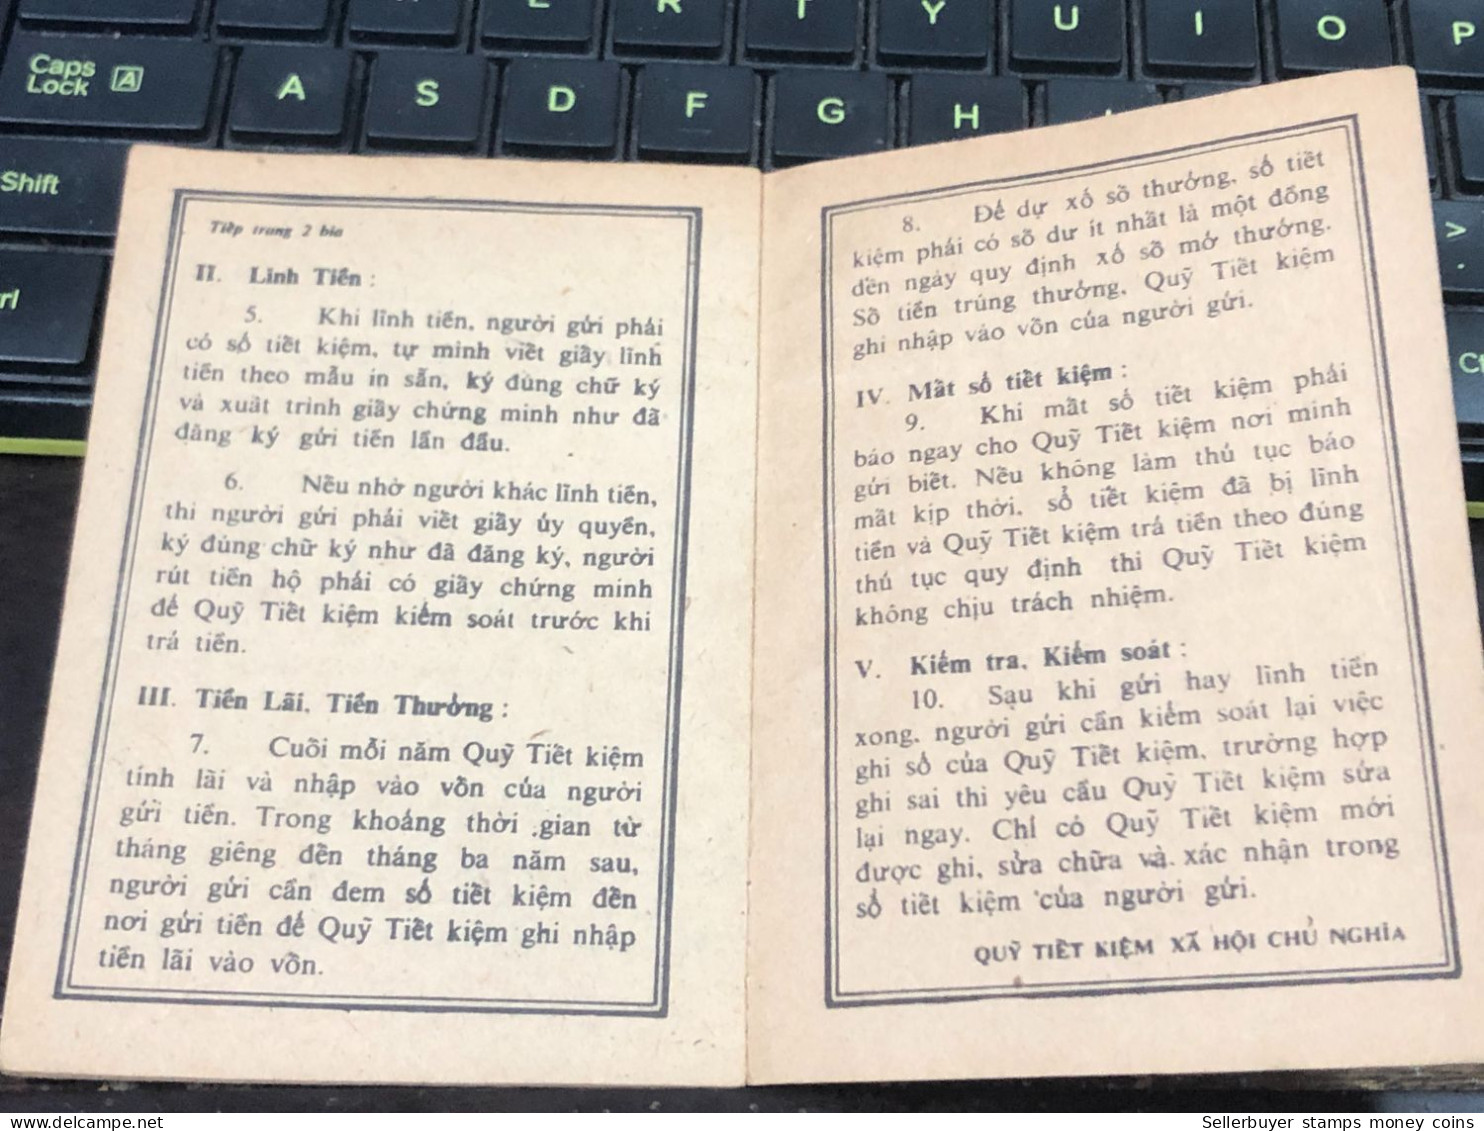 Caps
Lock
A
A S D F G H
E R T Y U I O P
Shift
Tiếp trang 2 bìa
II. Lĩnh Tiền :
5. Khi lĩnh tiền, người gửi phải
có sổ tiết kiệm, tự mình viết giấy lĩnh
tiền theo mẫu in sẵn, ký đúng chữ ký
và xuất trình giấy chứng minh như đã
đăng ký gửi tiền lần đầu.
6. Nếu nhờ người khác lĩnh tiền,
thì người gửi phải viết giấy ủy quyền,
ký đúng chữ ký như đã đăng ký, người
rút tiền hộ phải có giấy chứng minh
để Quỹ Tiết kiệm kiểm soát trước khi
trả tiền.
III. Tiền Lãi, Tiền Thưởng :
7. Cuối mỗi năm Quỹ Tiết kiệm
tính lãi và nhập vào vốn của người
gửi tiền. Trong khoảng thời gian từ
tháng giêng đến tháng ba năm sau,
người gửi cần đem sổ tiết kiệm đến
nơi gửi tiền để Quỹ Tiết kiệm ghi nhập
tiền lãi vào vốn.
8. Để dự xổ số thưởng, sổ tiết
kiệm phải có số dư ít nhất là một đồng
đến ngày quy định xổ số mở thưởng.
Số tiền trúng thưởng, Quỹ Tiết kiệm
ghi nhập vào vốn của người gửi.
IV. Mất sổ tiết kiệm :
9. Khi mất sổ tiết kiệm phải
báo ngay cho Quỹ Tiết kiệm nơi mình
gửi biết. Nếu không làm thủ tục báo
mất kịp thời, sổ tiết kiệm đã bị lĩnh
tiền và Quỹ Tiết kiệm trả tiền theo đúng
thủ tục quy định thì Quỹ Tiết kiệm
không chịu trách nhiệm.
V. Kiểm tra, Kiểm soát :
10. Sau khi gửi hay lĩnh tiền
xong, người gửi cần kiểm soát lại việc
ghi sổ của Quỹ Tiết kiệm, trường hợp
ghi sai thì yêu cầu Quỹ Tiết kiệm sửa
lại ngay. Chỉ có Quỹ Tiết kiệm mới
được ghi, sửa chữa và xác nhận trong
sổ tiết kiệm của người gửi.
QUỸ TIẾT KIỆM XÃ HỘI CHỦ NGHĨA
Sellerbuyer stamps money coins